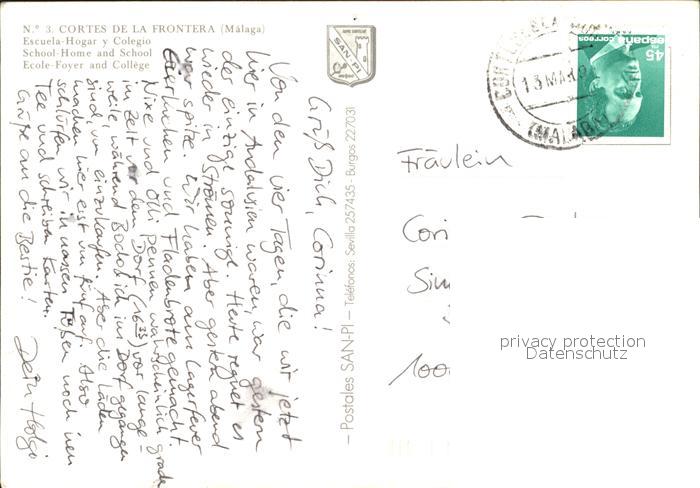 N.º 3. CORTES DE LA FRONTERA (Málaga)
Escuela-Hogar y Colegio
School-Home and School
Ecole-Foyer and Collège
SAN-PI
Grüß Dich, Corinna!
Von den vier Tagen, die wir jetzt
hier in Andalusien waren, war gestern
der einzige sonnige. Heute regnet es
wieder in Strömen. Aber gestern abend
war spitze. Wir haben am Lagerfeuer
Eierkuchen und Fladenbrote gemacht.
Nixe und Olli pennen wahrscheinlich grade
im Zelt vor dem Dorf (16 25) vor lange-
weile, während Bodo & ich ins Dorf gegangen
sind, um einzukaufen. Aber die Läden
machen hier erst um fünf auf. Also
schlürfen wir in nassen noch nen
Tee und schreiben Karten.
Grüße an die Bestie!
Dein Holgi
– Postales SAN-PI – Teléfonos: Sevilla 257435 - Burgos 227031
CORTES
13 MAR
(MALAGA)
45
PTA
españa
correos
Fräulein
Cori
Sim
100
privacy protection
Datenschutz